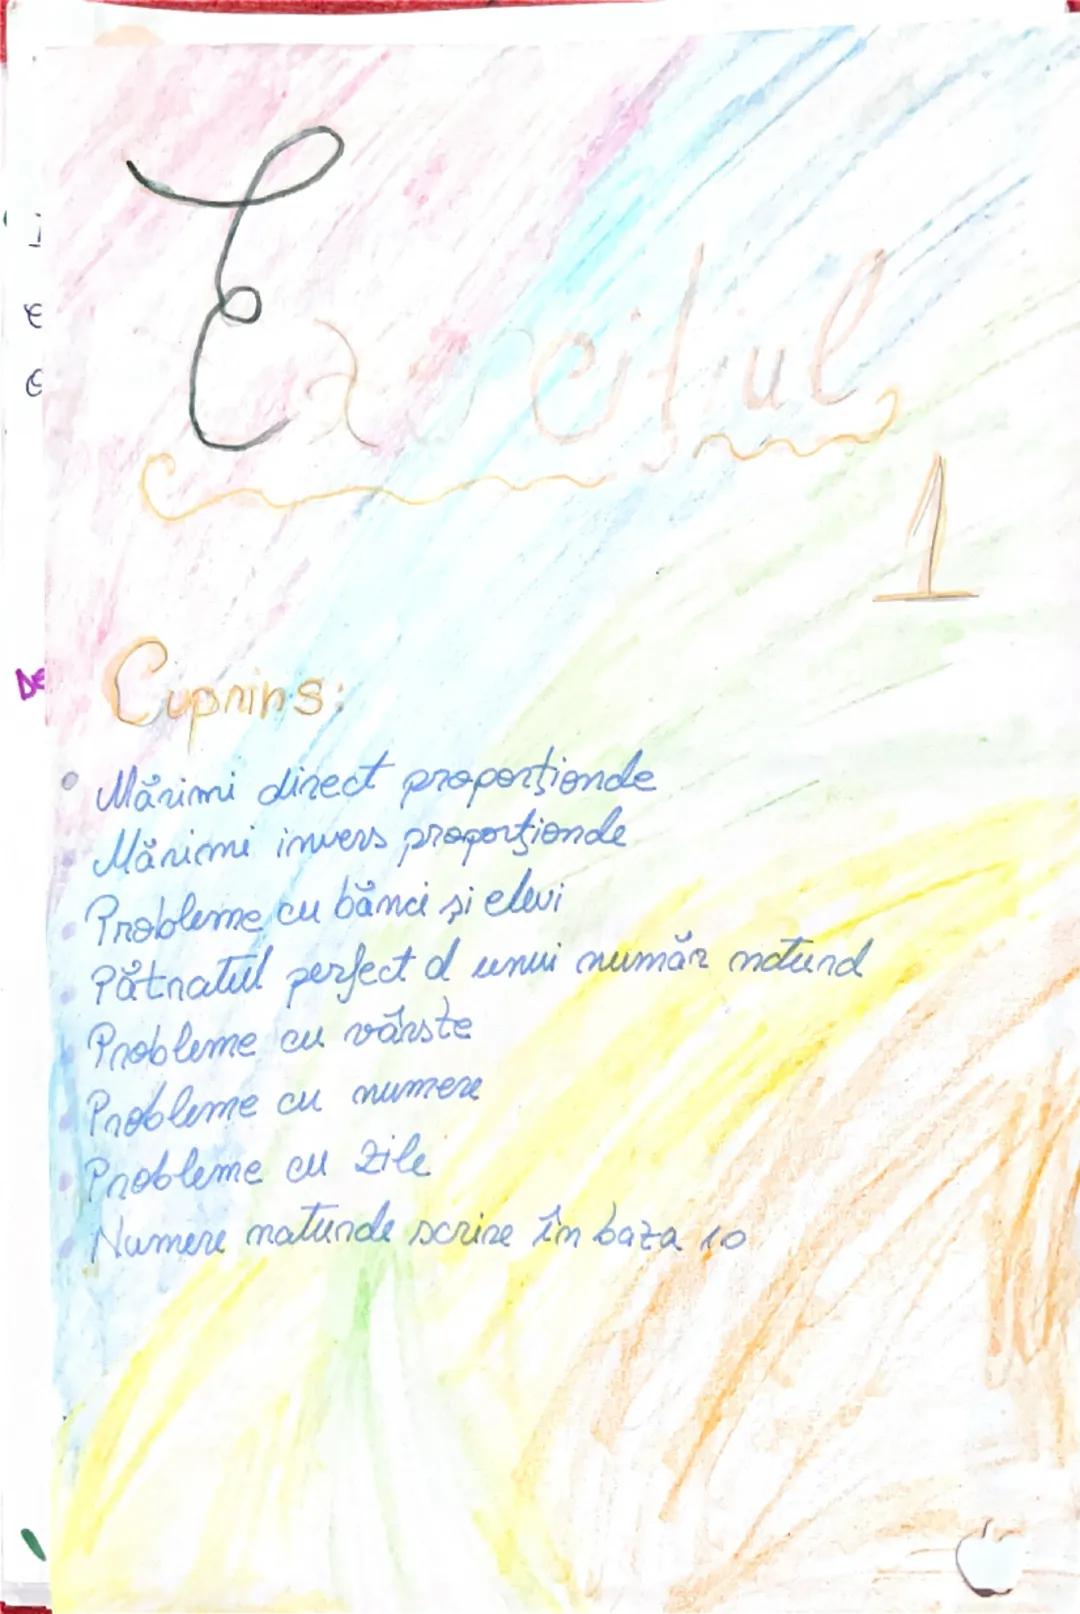 1
Cuprins:
• Mărimi direct proporționale
• Mărimi invers proporționale
• Probleme cu bănci și elevi
• Pătratul perfect al unui număr natural
• Probleme cu vârste
• Probleme cu numere
• Probleme cu zile
• Numere naturale scrise în baza 10